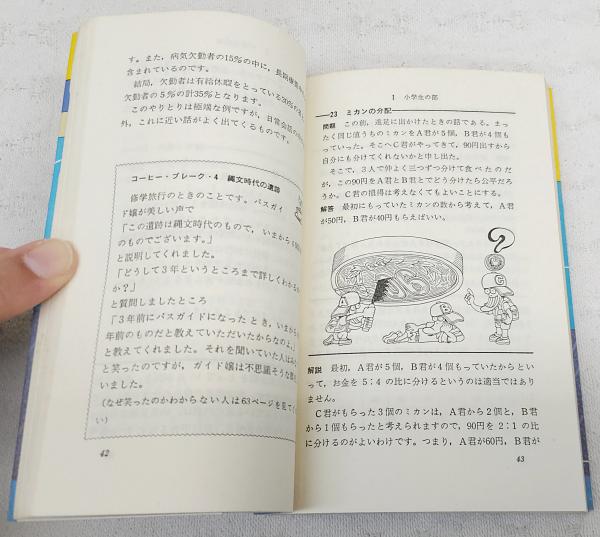 す。また、病気欠勤者の15％の中に、長期療
含まれているのです。
結局、欠勤者は有給休暇をとっている30％の
欠勤者の5％の計35％となります。
このやりとりは極端な例ですが、日常会話の
外、これに近い話がよく出てくるものです。
コーヒー・ブレーク・4　縄文時代の遺跡
修学旅行のときのことです。バスガイ
ド嬢が美しい声で
「この遺跡は縄文時代のもので、いまから
のものでございます。」
と説明してくれました。
「どうして3年というところまで詳しくわかる
か？」
と質問しましたところ
「3年前にバスガイドになったとき、いまから
年前のものだと教えていただいたからなのよ」
と教えてくれました。それを聞いていた人は
と笑ったのですが、ガイド嬢は不思議そうな
いました。
(なぜ笑ったのかわからない人は63ページを見て
い)
42
1　小学生の部
23　ミカンの分配
問題　この前、遠足に出かけたときの話である。まっ
たく同じ値うちのミカンをA君が5個、B君が4個も
っていた。そこへC君がやってきて、90円出すから
自分にも分けてくれないかと申し出た。
そこで、3人で仲よく三つずつ分けて食べたのだ
が、この90円をA君とB君とでどう分けたら公平だろ
うか。C君の損得は考えなくてもよいことにする。
解答　最初にもっていたミカンの数から考えて、A君
が50円、B君が40円もらえばいい。
解説　最初、A君が5個、B君が4個もっていたからとい
って、お金を5：4の比に分けるというのは適当ではあり
ません。
C君がもらった3個のミカンは、A君から2個と、B君
から1個もらったと考えられますので、90円を2：1の比
に分けるのがよいわけです。つまり、A君が60円、B君が
43